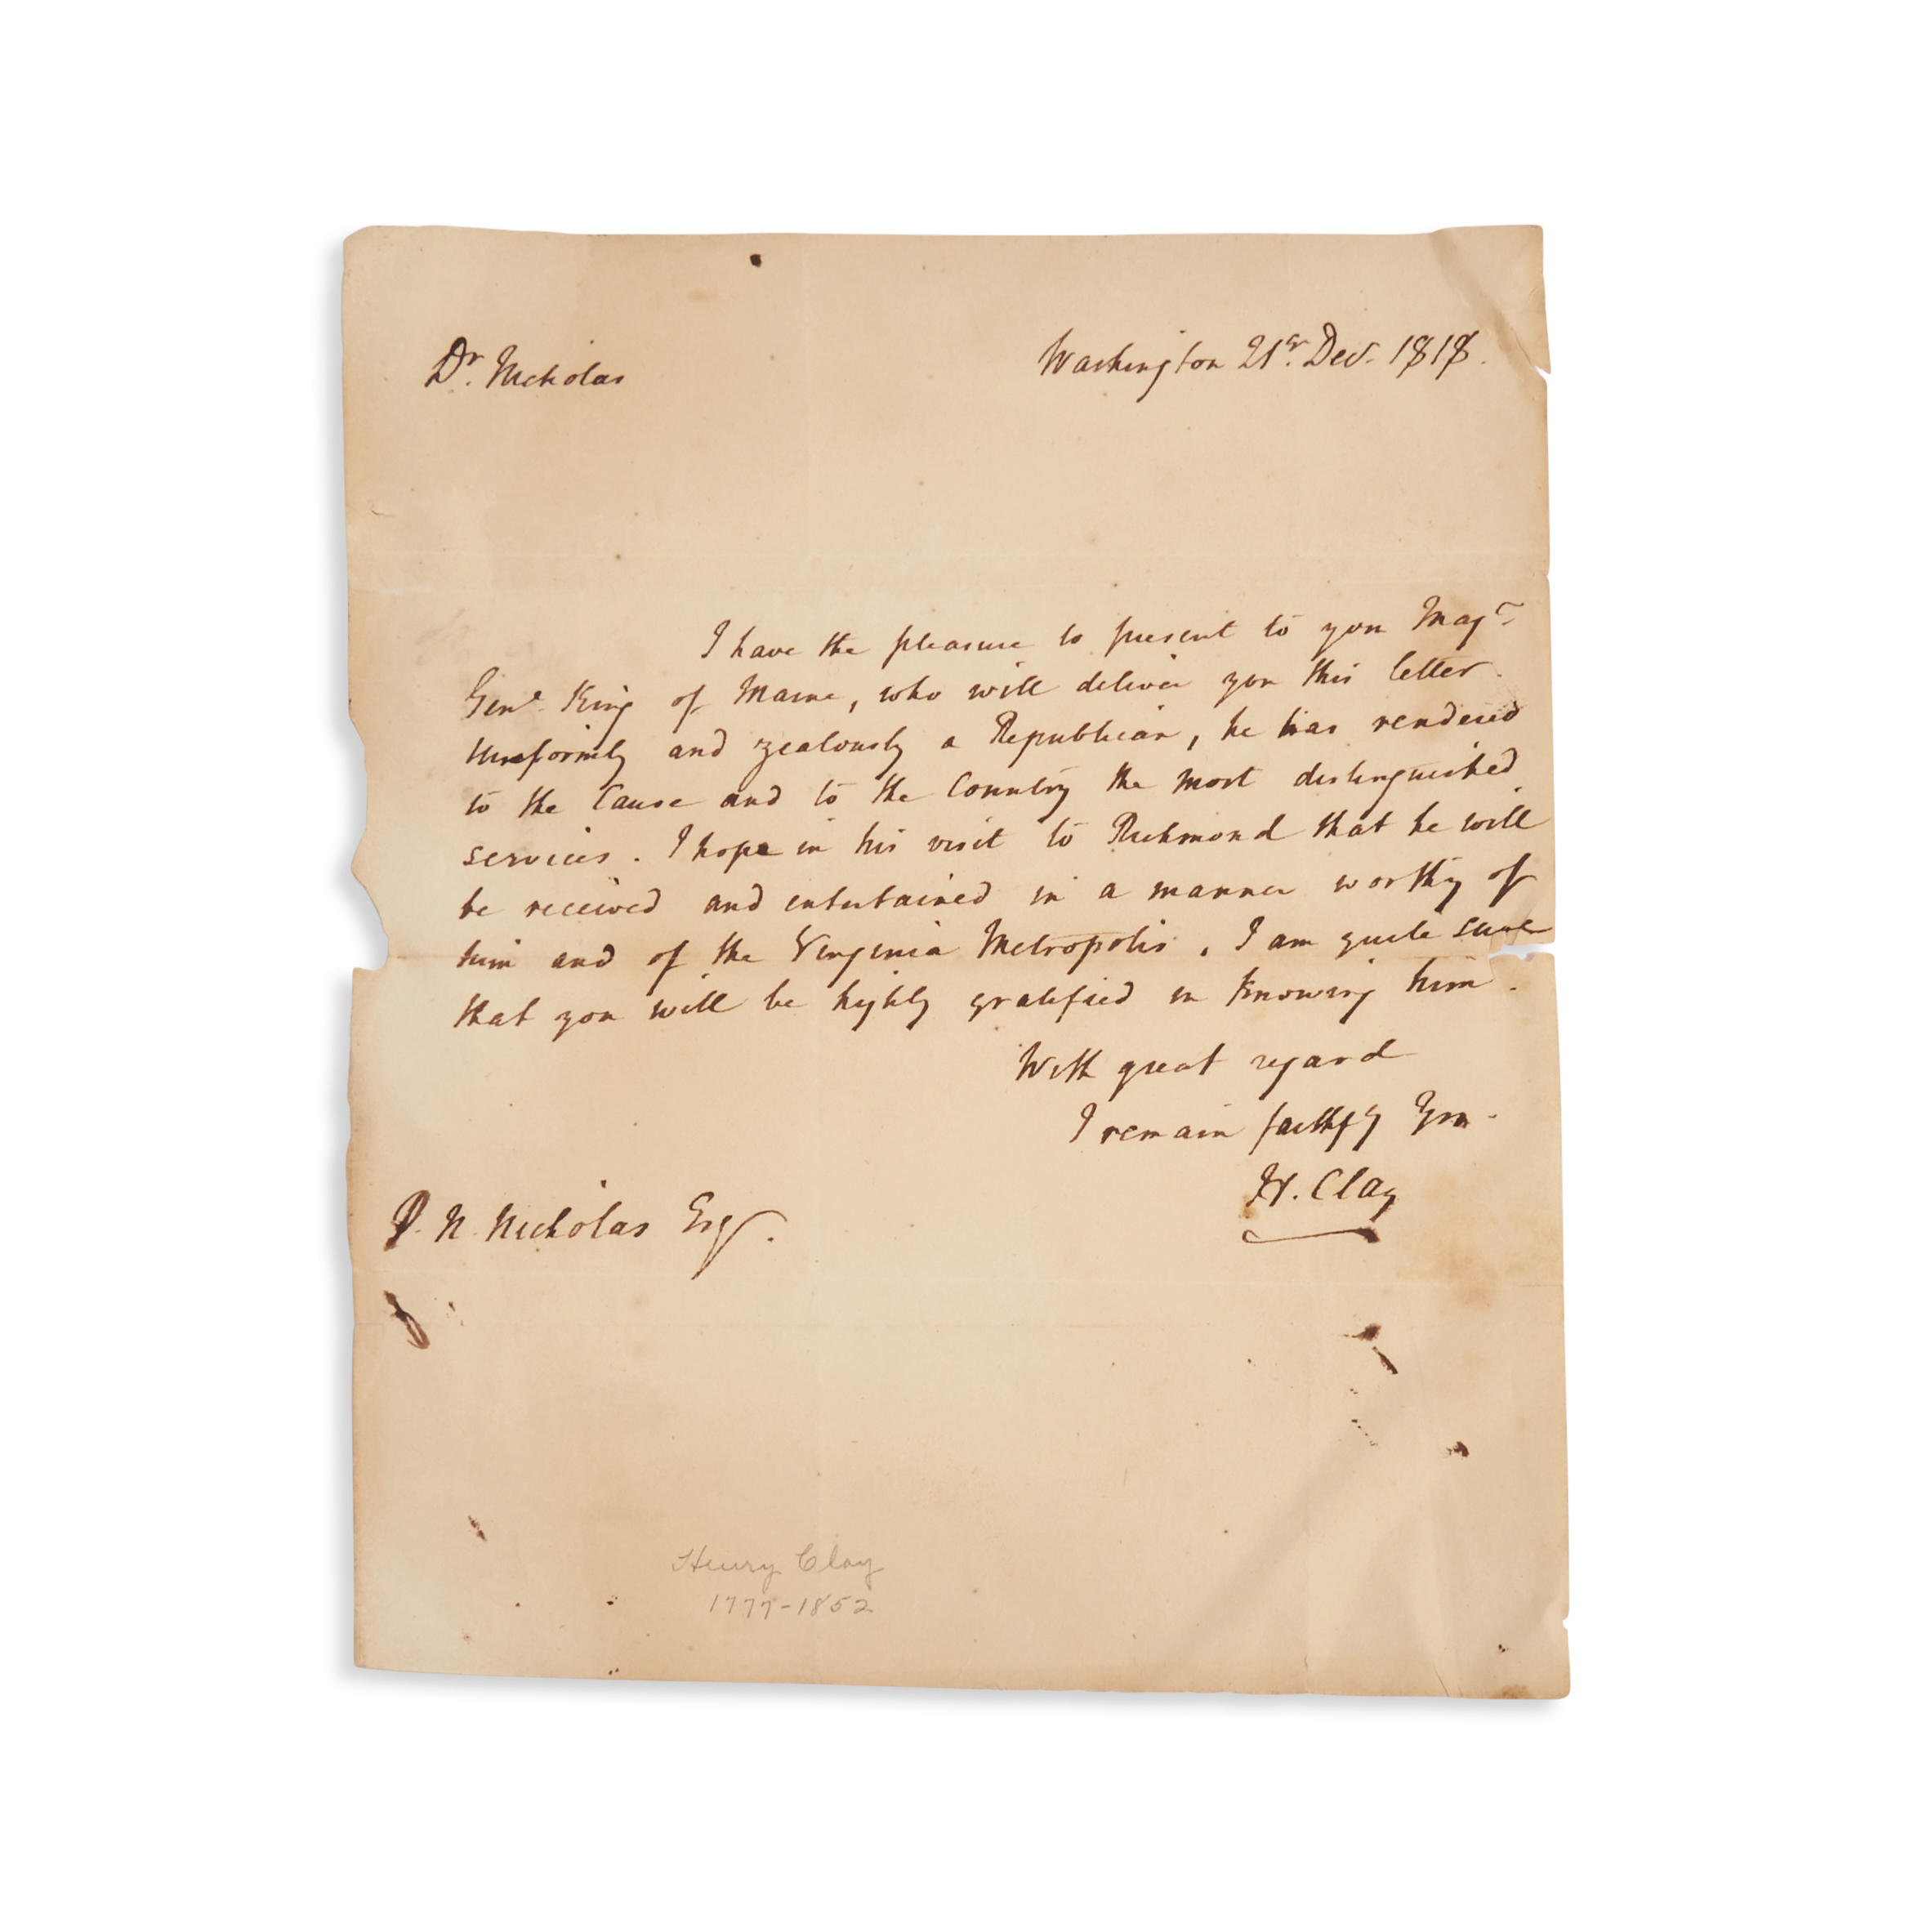 Dr. Nicholas
Washington 21st. Decr. 1818.
I have the pleasure to present to you Majr
Genl. King of Maine, who will deliver you this letter.
Uniformly and zealously a Republican, he has rendered
to the Cause and to the Country the most distinguished
services. I hope in his visit to Richmond that he will
be received and entertained in a manner worthy of
him and of the Virginia Metropolis. I am quite sure
that you will be highly gratified in knowing him.
With great regard
I remain faithfy Yrs.
H. Clay
P. N. Nicholas Esqr.
Henry Clay
1777-1852